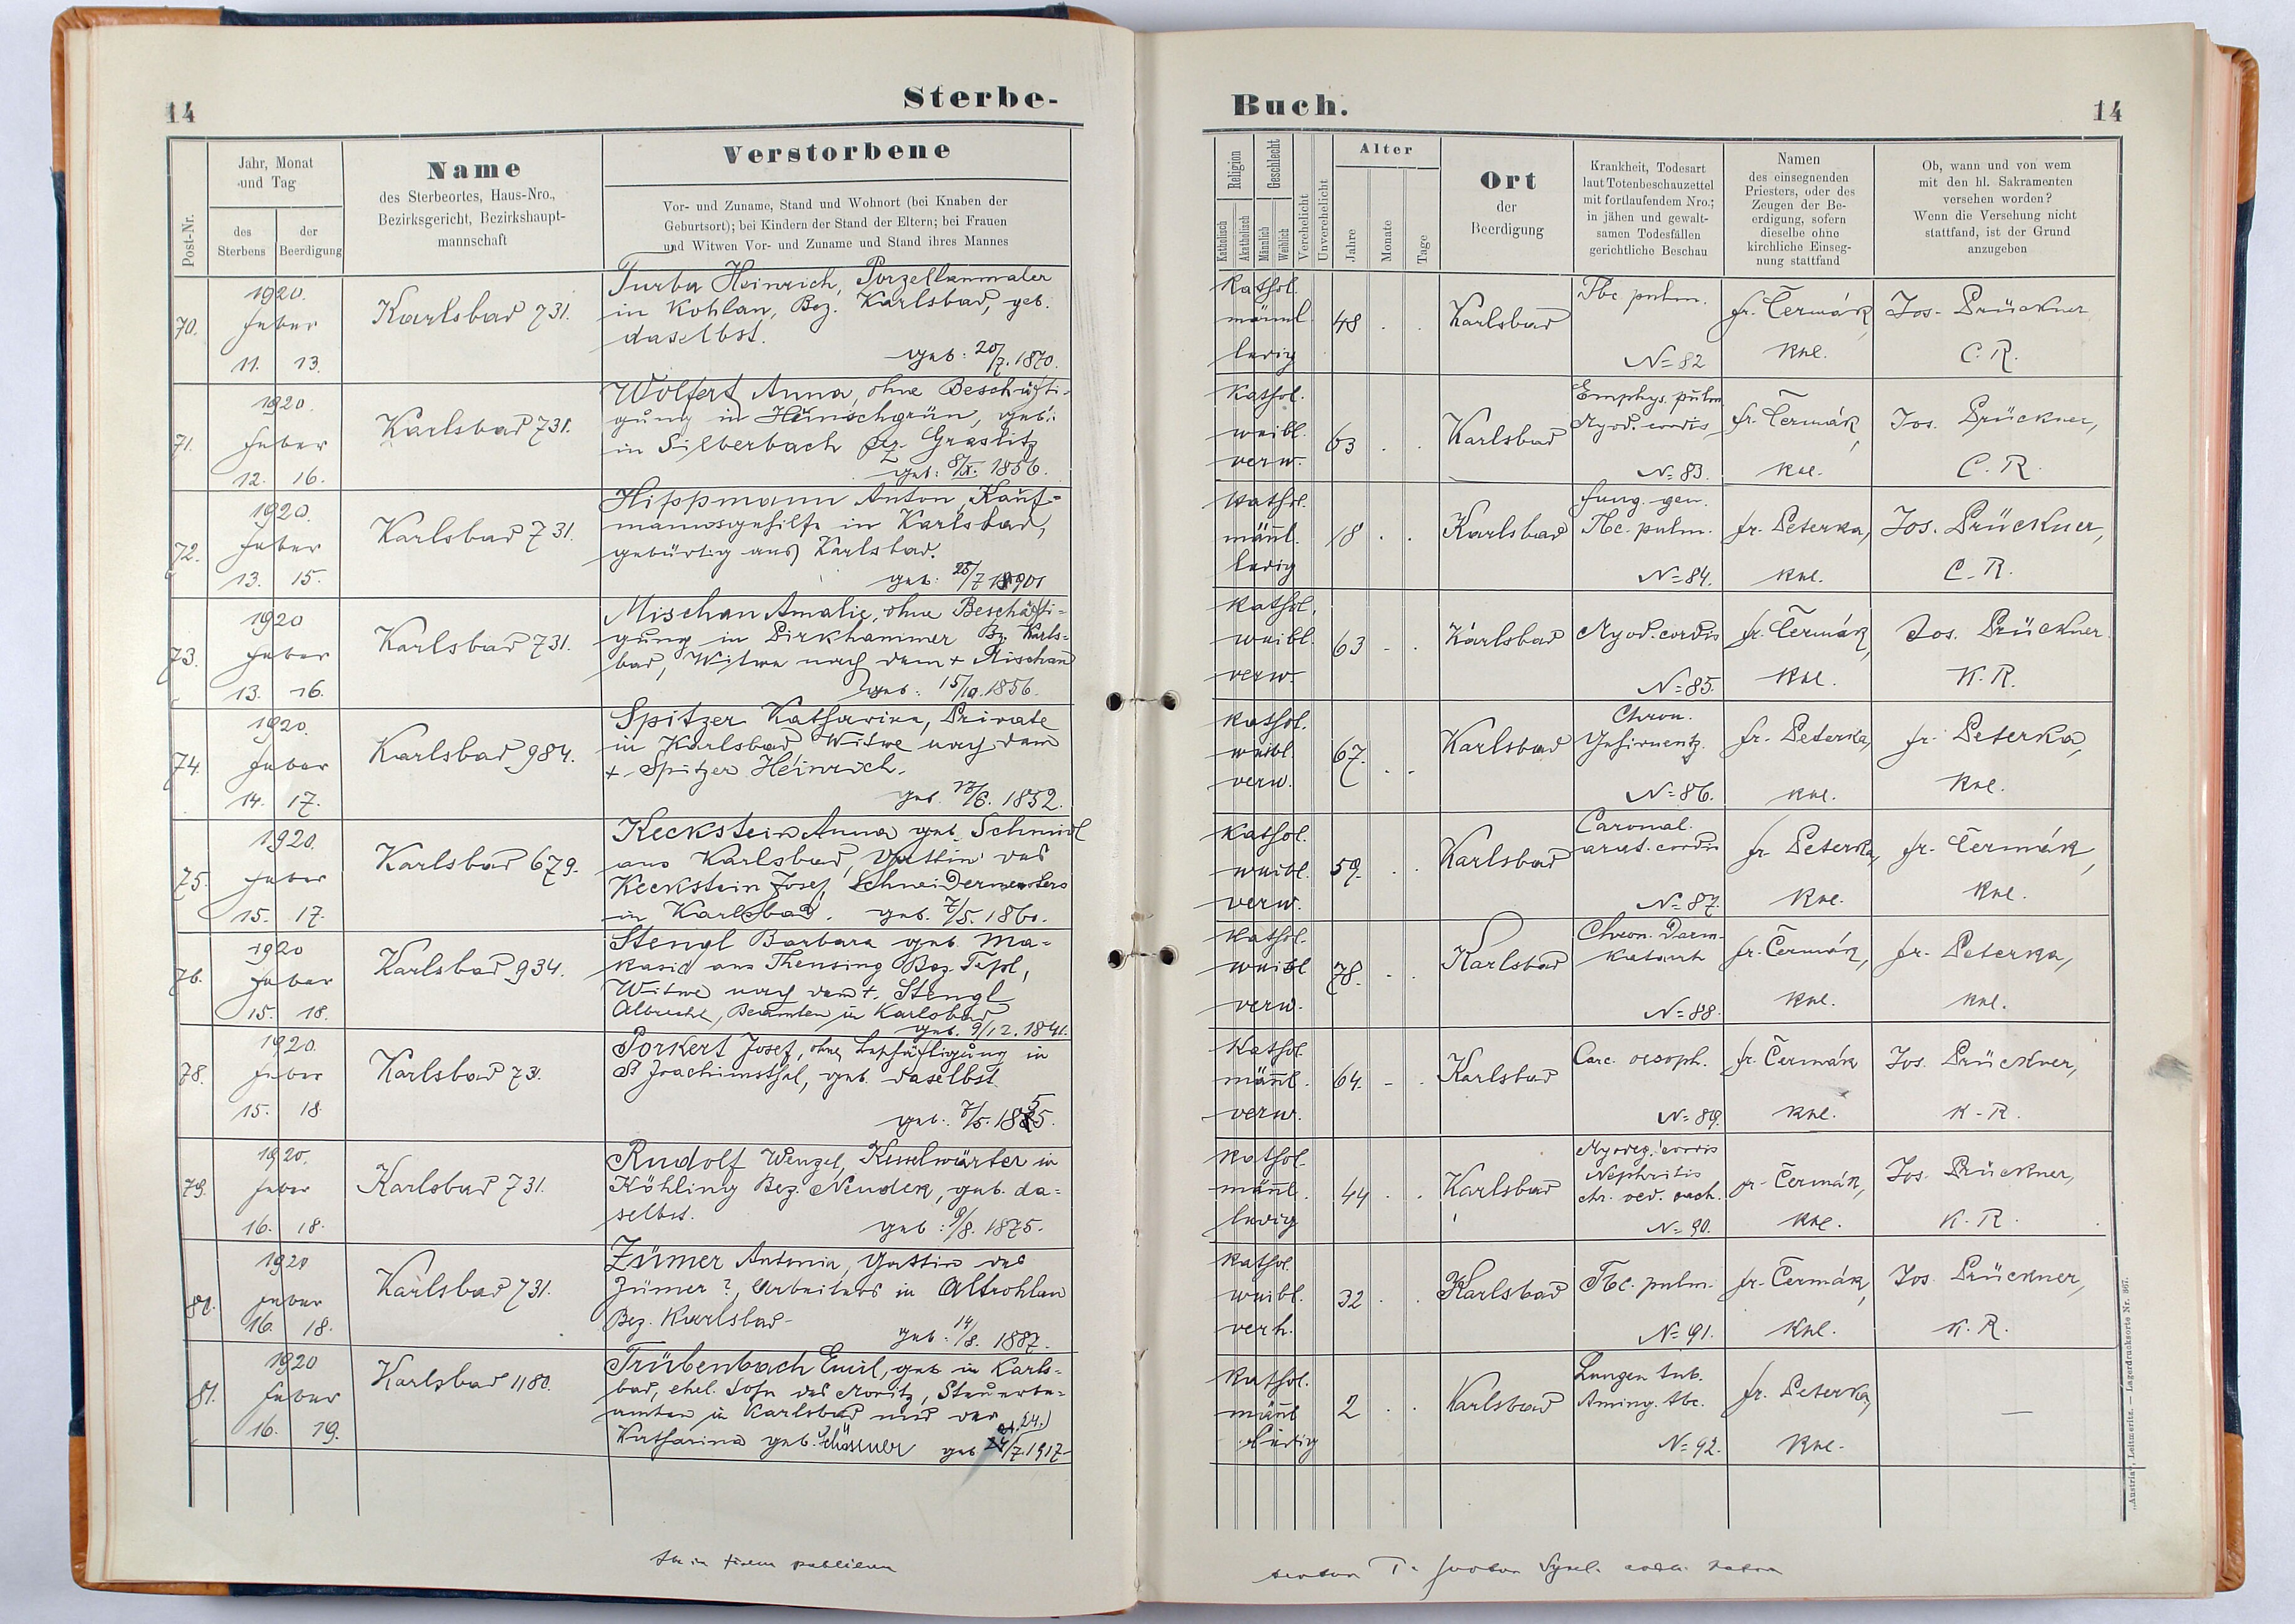 14
Sterbe-
Post-Nr.
Jahr, Monat
und Tag
des
Sterbens
der
Beerdigung
Name
des Sterbeortes, Haus-Nro.,
Bezirksgericht, Bezirkshaupt-
mannschaft
Verstorbene
Vor- und Zuname, Stand und Wohnort (bei Knaben der
Geburtsort); bei Kindern der Stand der Eltern; bei Frauen
und Witwen Vor- und Zuname und Stand ihres Mannes
70.
1920.
Feber
11. 13.
Karlsbad 731.
Turba Heinrich, Porzellanmaler
in Kohlau, Bez. Karlsbad, geb.
daselbst.
geb: 20/7. 1870.
71.
1920.
Feber
12. 16.
Karlsbad 731.
Wolfert Anna, ohne Beschäfti-
gung in Heinrichgrün, geb.
in Silberbach Bez. Graslitz
geb: 8/IX. 1856.
72.
1920.
Feber
13. 15.
Karlsbad 731.
Hippmann Anton, Kauf-
mannsgehilfe in Karlsbad,
gebürtig aus Karlsbad.
geb: 7 1901
73.
1920
Feber
13. 16.
Karlsbad 731.
Mischan Amalie, ohne Beschäfti-
gung in Pirkhammer Bz. Karls-
bad, Witwe nach dem + Mischan
geb: 1856.
74.
1920.
Feber
14. 17.
Karlsbad 984.
Spitzer Katharina, Private
in Karlsbad Witwe nach dem
+ Spitzer Heinrich.
geb. 1852.
75.
1920.
Feber
15. 17.
Karlsbad 679.
Keckstein Anna geb. Schmidl
aus Karlsbad, Gattin des
Keckstein Josef, Schneidermeisters
in Karlsbad. geb. 7/5. 1860.
76.
1920
Feber
15. 18.
Karlsbad 934.
Stengl Barbara geb. Ma-
kasid aus Theusing Bez. Tepl,
Witwe nach dem +. Stengl
Albrecht, Beamten in Karlsbad
geb. 9/12. 1841.
78.
1920.
Feber
15. 18.
Karlsbad 731.
Porkert Josef, ohne Beschäftigung in
St Joachimsthal, geb. daselbst
geb: 7/5. 1855.
79.
1920.
Feber
16. 18.
Karlsbad 731.
Rudolf Wenzel, Kesselwärter in
Köhling Bez. Neudek, geb. da-
selbst.
geb: 9/8. 1875.
80.
1920
Feber
16. 18.
Karlsbad 731.
Zümer Antonia, Gattin des
Zümer ?, Arbeiters in Altrohlau
Bez. Karlsbad-
geb: 14/8. 1887.
81.
1920
Feber
16. 19.
Karlsbad 1180.
Trübenbach Emil, geb. in Karls-
bad, ehel. Sohn des Moritz, Steuerbe-
amten in Karlsbad und der
Katharina geb. geb 24/7.1917
Buch.
14
Religion
Katholisch
Akatholisch
Geschlecht
Männlich
Weiblich
Verehelicht
Unverehelicht
Alter
Jahre
Monate
Tage
Ort
der
Beerdigung
Krankheit, Todesart
laut Totenbeschauzettel
mit fortlaufendem Nro.;
in jähen und gewalt-
samen Todesfällen
gerichtliche Beschau
Namen
des einsegnenden
Priesters, oder des
Zeugen der Be-
erdigung, sofern
dieselbe ohne
kirchliche Einseg-
nung stattfand
Ob, wann und von wem
mit den hl. Sakramenten
versehen worden?
Wenn die Versehung nicht
stattfand, ist der Grund
anzugeben
Kathol.
männl.
ledig
48
Karlsbad
Tbc pulm.
N= 82
fr. Čermák,
Kne.
Jos. Prückner
C. R.
Kathol.
weibl.
verw.
63
Karlsbad
Emphys. pulm
Myod. cordis
N= 83.
fr. Čermák,
Kne.
Jos. Prückner,
C. R.
Kathol.
männl.
ledig
18
Karlsbad
Fung. gen.
Tbc. pulm.
N= 84.
fr. Peterka,
Kne.
Jos. Prückner,
C. R.
Kathol.
weibl.
verw.
63
Karlsbad
Myod. cordis
N= 85.
fr. Čermák,
Kne.
Jos. Prückner
K. R.
Kathol.
weibl.
verw.
67.
Karlsbad
Chron.
N= 86.
fr. Peterka,
Kne.
fr. Peterka,
Kne.
Kathol.
weibl.
verw.
59.
Karlsbad
cordis
N= 87.
fr Peterka,
Kne.
fr. Čermák,
Kne.
Kathol.
weibl
verw.
78.
Karlsbad
Chron. Darm-
katarrh
N= 88.
fr. Čermák,
Kne.
fr. Peterka,
Kne.
Kathol.
männl.
verw.
64.
Karlsbad
Carc. oesoph.
N= 89.
fr. Čermák
Kne.
Jos. Prückner,
K. R.
Kathol.
männl.
ledig
44
Karlsbad
Myodeg. cordis
Nephritis
N= 90.
fr. Čermák,
Kne.
Jos. Prückner,
K. R.
Kathol.
weibl.
verh.
32
Karlsbad
Tbc. pulm.
N= 91.
fr. Čermák,
Kne.
Jos. Prückner,
K. R.
Kathol.
männl
ledig
2
Karlsbad
Lungen tub.
Mening. tbc.
N= 92.
fr. Peterka,
Kne.
—
„Austria“, Leitmeritz. — Lagerdrucksorte Nr. 567.